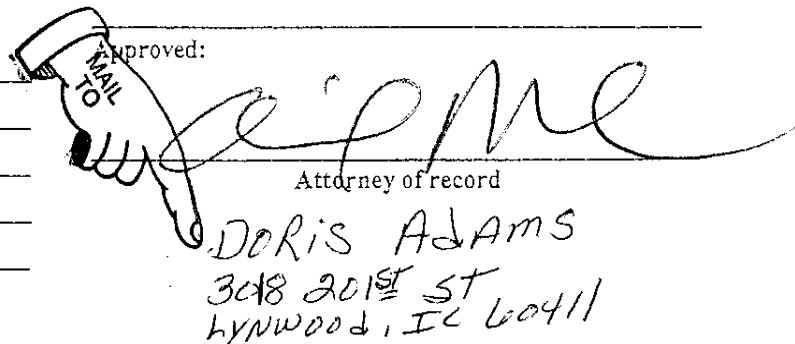 Approved:
MAIL
TO
Attorney of record
DORIS AdAMS
3018 201ST ST
LYNWOOD, IL 60411